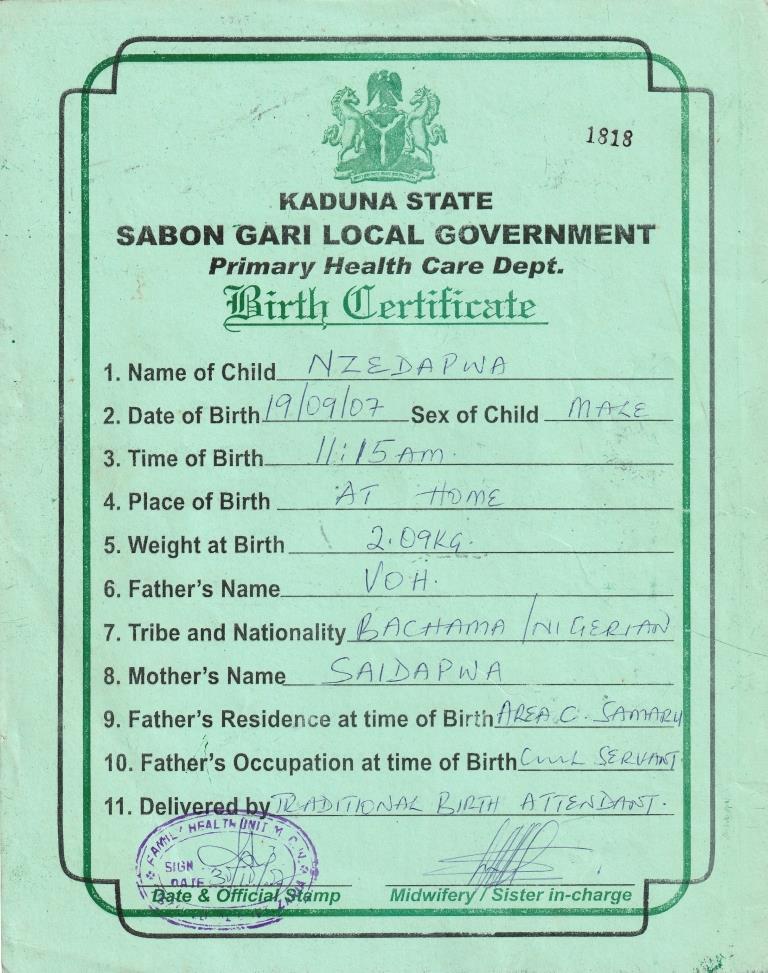 1818
KADUNA STATE
SABON GARI LOCAL GOVERNMENT
Primary Health Care Dept.
Birth Certificate
1. Name of Child NZEDAPWA
2. Date of Birth 19/09/07 Sex of Child MALE
3. Time of Birth 11:15 AM.
4. Place of Birth AT HOME
5. Weight at Birth 2.09KG.
6. Father's Name VOH.
7. Tribe and Nationality BACHAMA / NIGERIAN
8. Mother's Name SAIDAPWA
9. Father's Residence at time of Birth AREA C. SAMARU
10. Father's Occupation at time of Birth CIVIL SERVANT
11. Delivered by TRADITIONAL BIRTH ATTENDANT.
FAMILY HEALTH UNIT
SIGN
DATE
Date & Official Stamp Midwifery / Sister in-charge